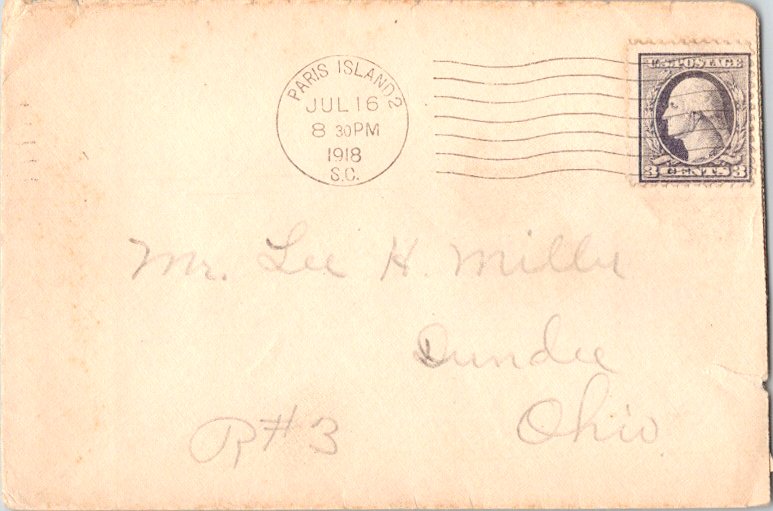 PARIS ISLAND 2
JUL 16
8 30PM
1918
S.C.
U.S. POSTAGE
3 CENTS 3
Mr. Lee H. Miller
Dundee
Ohio
R#3